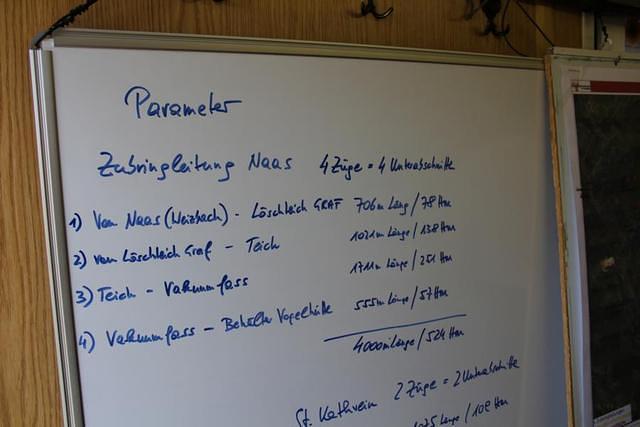 Parameter
Zubringleitung Naas 4 Züge = 4 Unterabschnitte
1) Von Naas (Weizbach) - Löschteich GRAF 706m Läng / 78 Hm
2) von Löschteich Graf - Teich 1021m Länge / 138 Hm
3) Teich - Vakuumfass 1711m Länge / 251 Hm
4) Vakuumfass - Behälter Vogelhütte 555m Länge / 57 Hm
4000m Länge / 524 Hm
St. Kathrein 2 Züge = 2 Unterabschnitte
Länge / 102 Hm